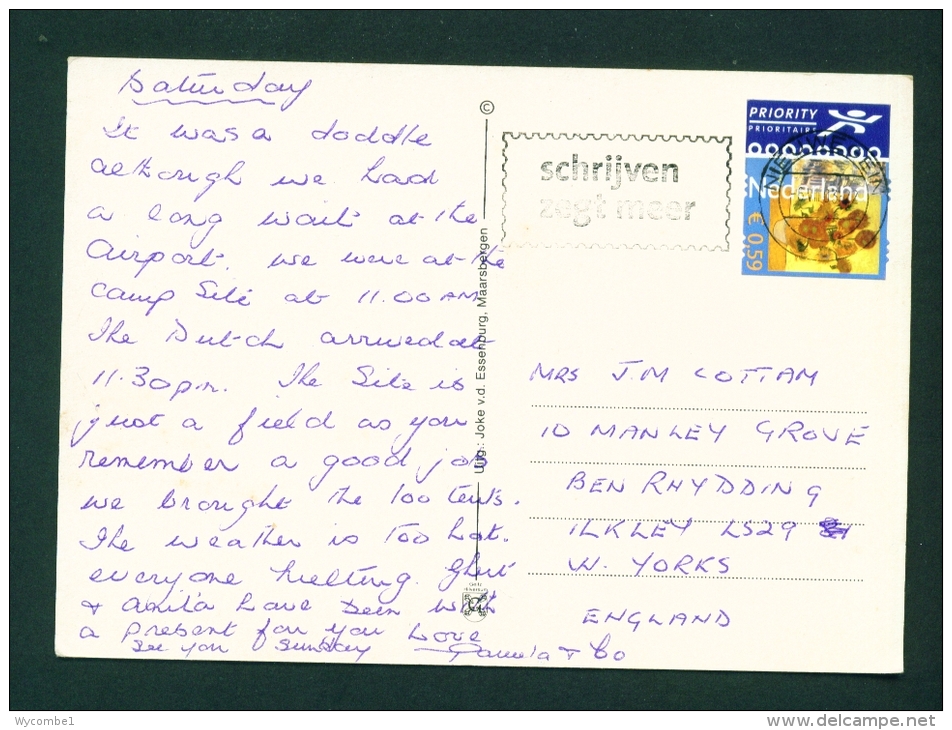 Saturday
It was a doddle
although we had
a long wait at the
Airport. we were at the
camp Site at 11.00 AM
The Dutch arrived at
11.30pm. The Site is
just a field as you
remember a good job
we brought the loo tents.
The weather is Too hot.
everyone melting.
& Anita have been with
a present for you Love
See you Sunday Pamela & Co
©
Uitg.: Joke v.d. Essenburg, Maarsbergen
schrijven
zegt meer
PRIORITY
PRIORITAIRE
NIEUWEGEIN
Nederland
€ 0,59
MRS J.M COTTAM
10 MANLEY GROVE
BEN RHYDDING
ILKLEY LS29
W. YORKS
ENGLAND
Wycombe1
delcampe.net